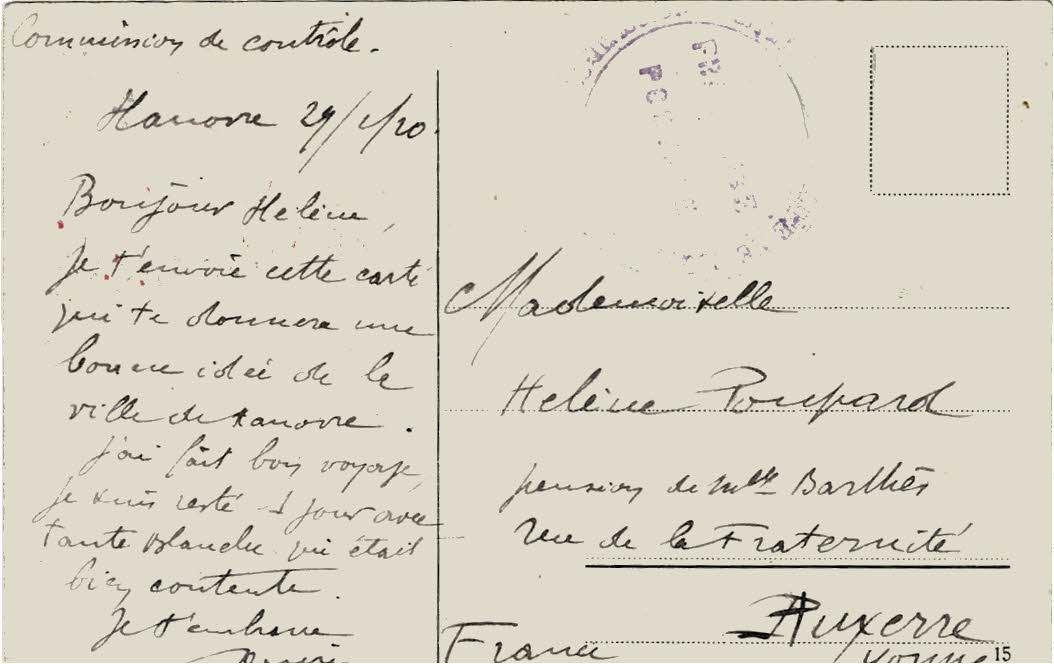 Commission de contrôle.
Hanovre 29/1/20.
Bonjour Helène,
Je t'envoie cette carte
qui te donnera une
bonne idée de la
ville de Hanovre.
J'ai fait bon voyage,
je suis resté 1 jour avec
tante Blanche qui était
bien contente.
Je t'embrasse
Mademoiselle
Helène Poupard
pension de Mlle Barthès
rue de la Fraternité
Auxerre
Yonne
France
15